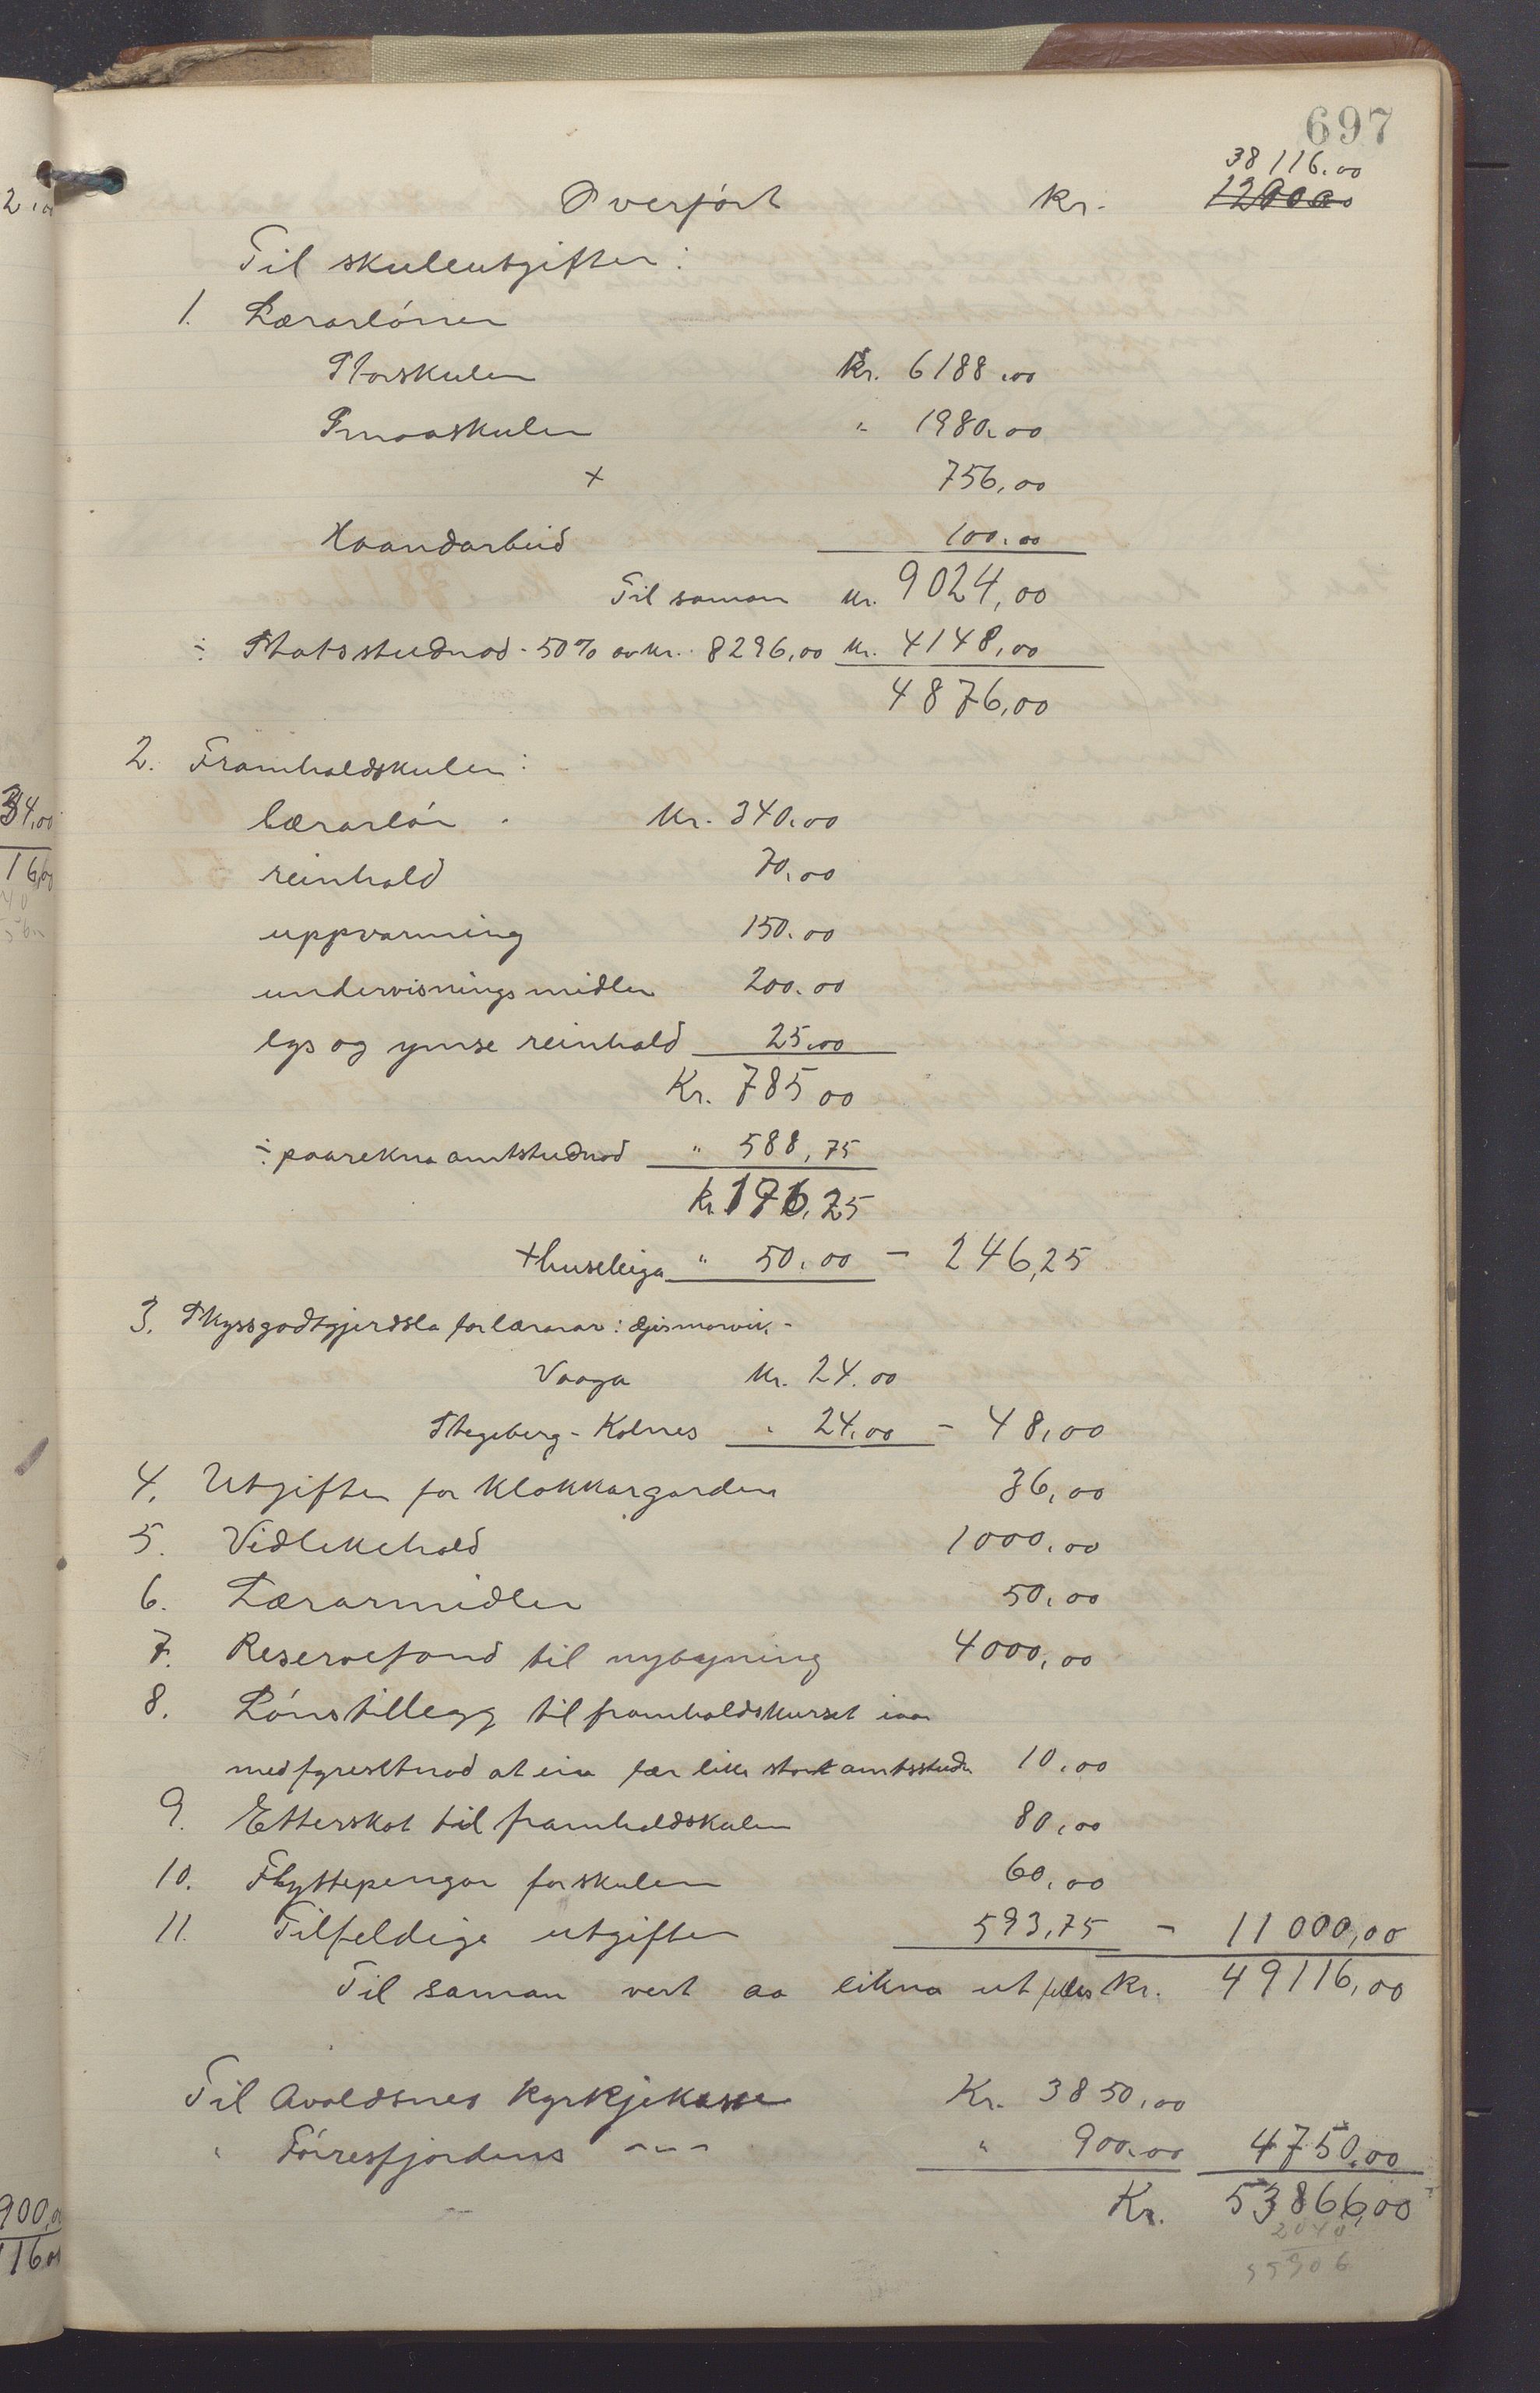 697
38116.00
Overført kr. 12900.00
Til skuleutgifter:
1. Lærarlóner
Storskulen kr. 6188.00
Smaaskulen " 1980.00
+ 756,00
Haandarbeid 100.00
Til saman kr. 9024,00
÷ Statsstudnad - 50% av kr. 8296,00 kr. 4148,00
4876,00
2. Framhaldskulen:
lærarlón kr. 340.00
reinhald 70.00
uppvarming 150.00
undervisningsmidler 200.00
lys og ymse reinhald 25.00
Kr. 785 00
÷ paarekna amtstudnad " 588,75
kr 196,25
+ huseleiga " 50.00 - 246,25
3. Skyssgodtgjerdsla for lærarar: Gismarvik -
Vaaga kr. 24.00
Stegeberg - Kolnes " 24.00 - 48,00
4. Utgifter for klokkargarden 36,00
5. Vedlikehald 1000.00
6. Lærarmidler 50.00
7. Reservefond til nybygning 4000,00
8. Lónstillegg til framhaldskurset iaar
med fyresetnad at ein fær like stort amtsstudn 10.00
9. Etterskot til framhaldskulen 80,00
10. Flyttepengar for skulen 60,00
11. Tilfeldige utgifter 593,75 - 11000,00
Til saman vert aa likna ut felles kr. 49116,00
Til Avaldsnes kyrkjekasse Kr. 3850,00
" Fórresfjordens -"- " 900.00 4750.00
Kr. 53866,00
2040
55906